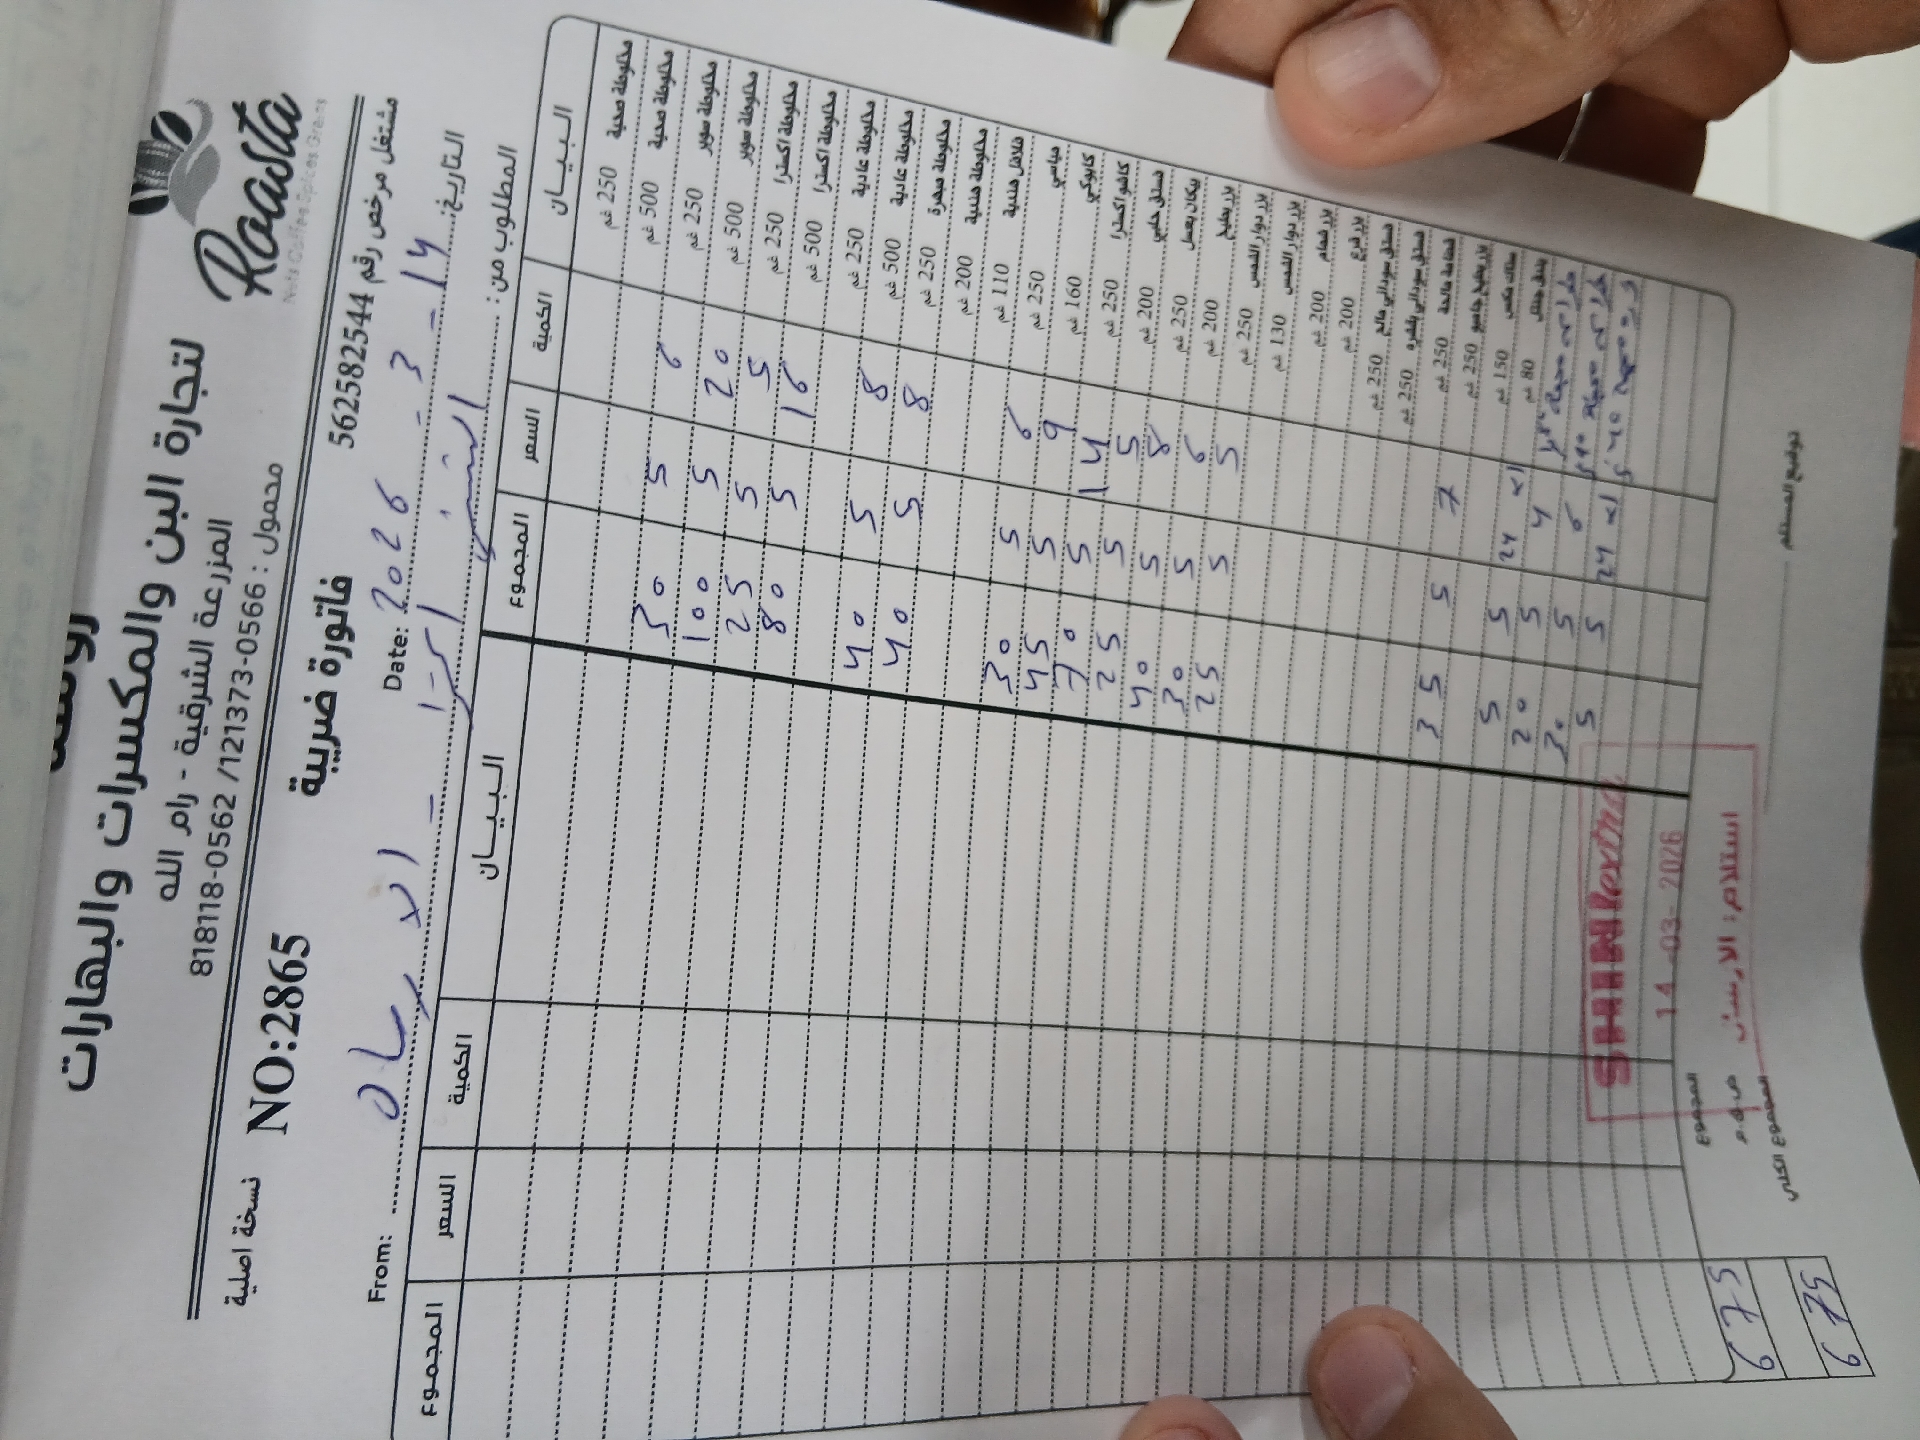 Roasta
Nuts Coffee Spices Greens
لتجارة البن والمكسرات والبهارات
المزرعة الشرقية - رام الله
محمول : 0566-121373/ 0562-818118
نسخة اصلية
NO:2865
فاتورة ضريبية
مشتغل مرخص رقم 562582544
From:
Date: 2026 - 3 - 14
التاريخ:
المطلوب من :
البيـــان الكمية السعر المجموع البيـــان الكمية السعر المجموع
مخلوطة صحية 250 غم
مخلوطة صحية 500 غم 6 5 30
مخلوطة سوبر 250 غم 20 5 100
مخلوطة سوبر 500 غم 5 5 25
مخلوطة اكسترا 250 غم 16 5 80
مخلوطة اكسترا 500 غم
مخلوطة عادية 250 غم 8 5 40
مخلوطة عادية 500 غم 8 5 40
مخلوطة مبهرة 250 غم
مخلوطة هندية 200 غم
فلافل هندية 110 غم 6 5 30
مياسي 250 غم 9 5 45
كابوكي 160 غم 14 5 70
كاشو اكسترا 250 غم 5 5 25
فستق حلبي 200 غم 8 5 40
بيكان بعسل 250 غم 6 5 30
بزر بطيخ 200 غم 5 5 25
بزر دوار الشمس 250 غم
بزر دوار الشمس 130 غم
بزر شمام 200 غم
بزر قرع 200 غم
فستق سوداني مالح 250 غم
فستق سوداني بقشره 250 غم
قضامة مالحة 250 غم 7 5 35
بزر بطيخ جامبو 250 غم
سناك مكس 150 غم 24 x1 5 5
بندق 80 غم 4 5 20
6 5 30
24 x1 5 5
SHINI extra
14 -03- 2026
استلام : الارسال
المجموع 675
ض.ق.م
المجموع الكلي 675
توقيع المستلم